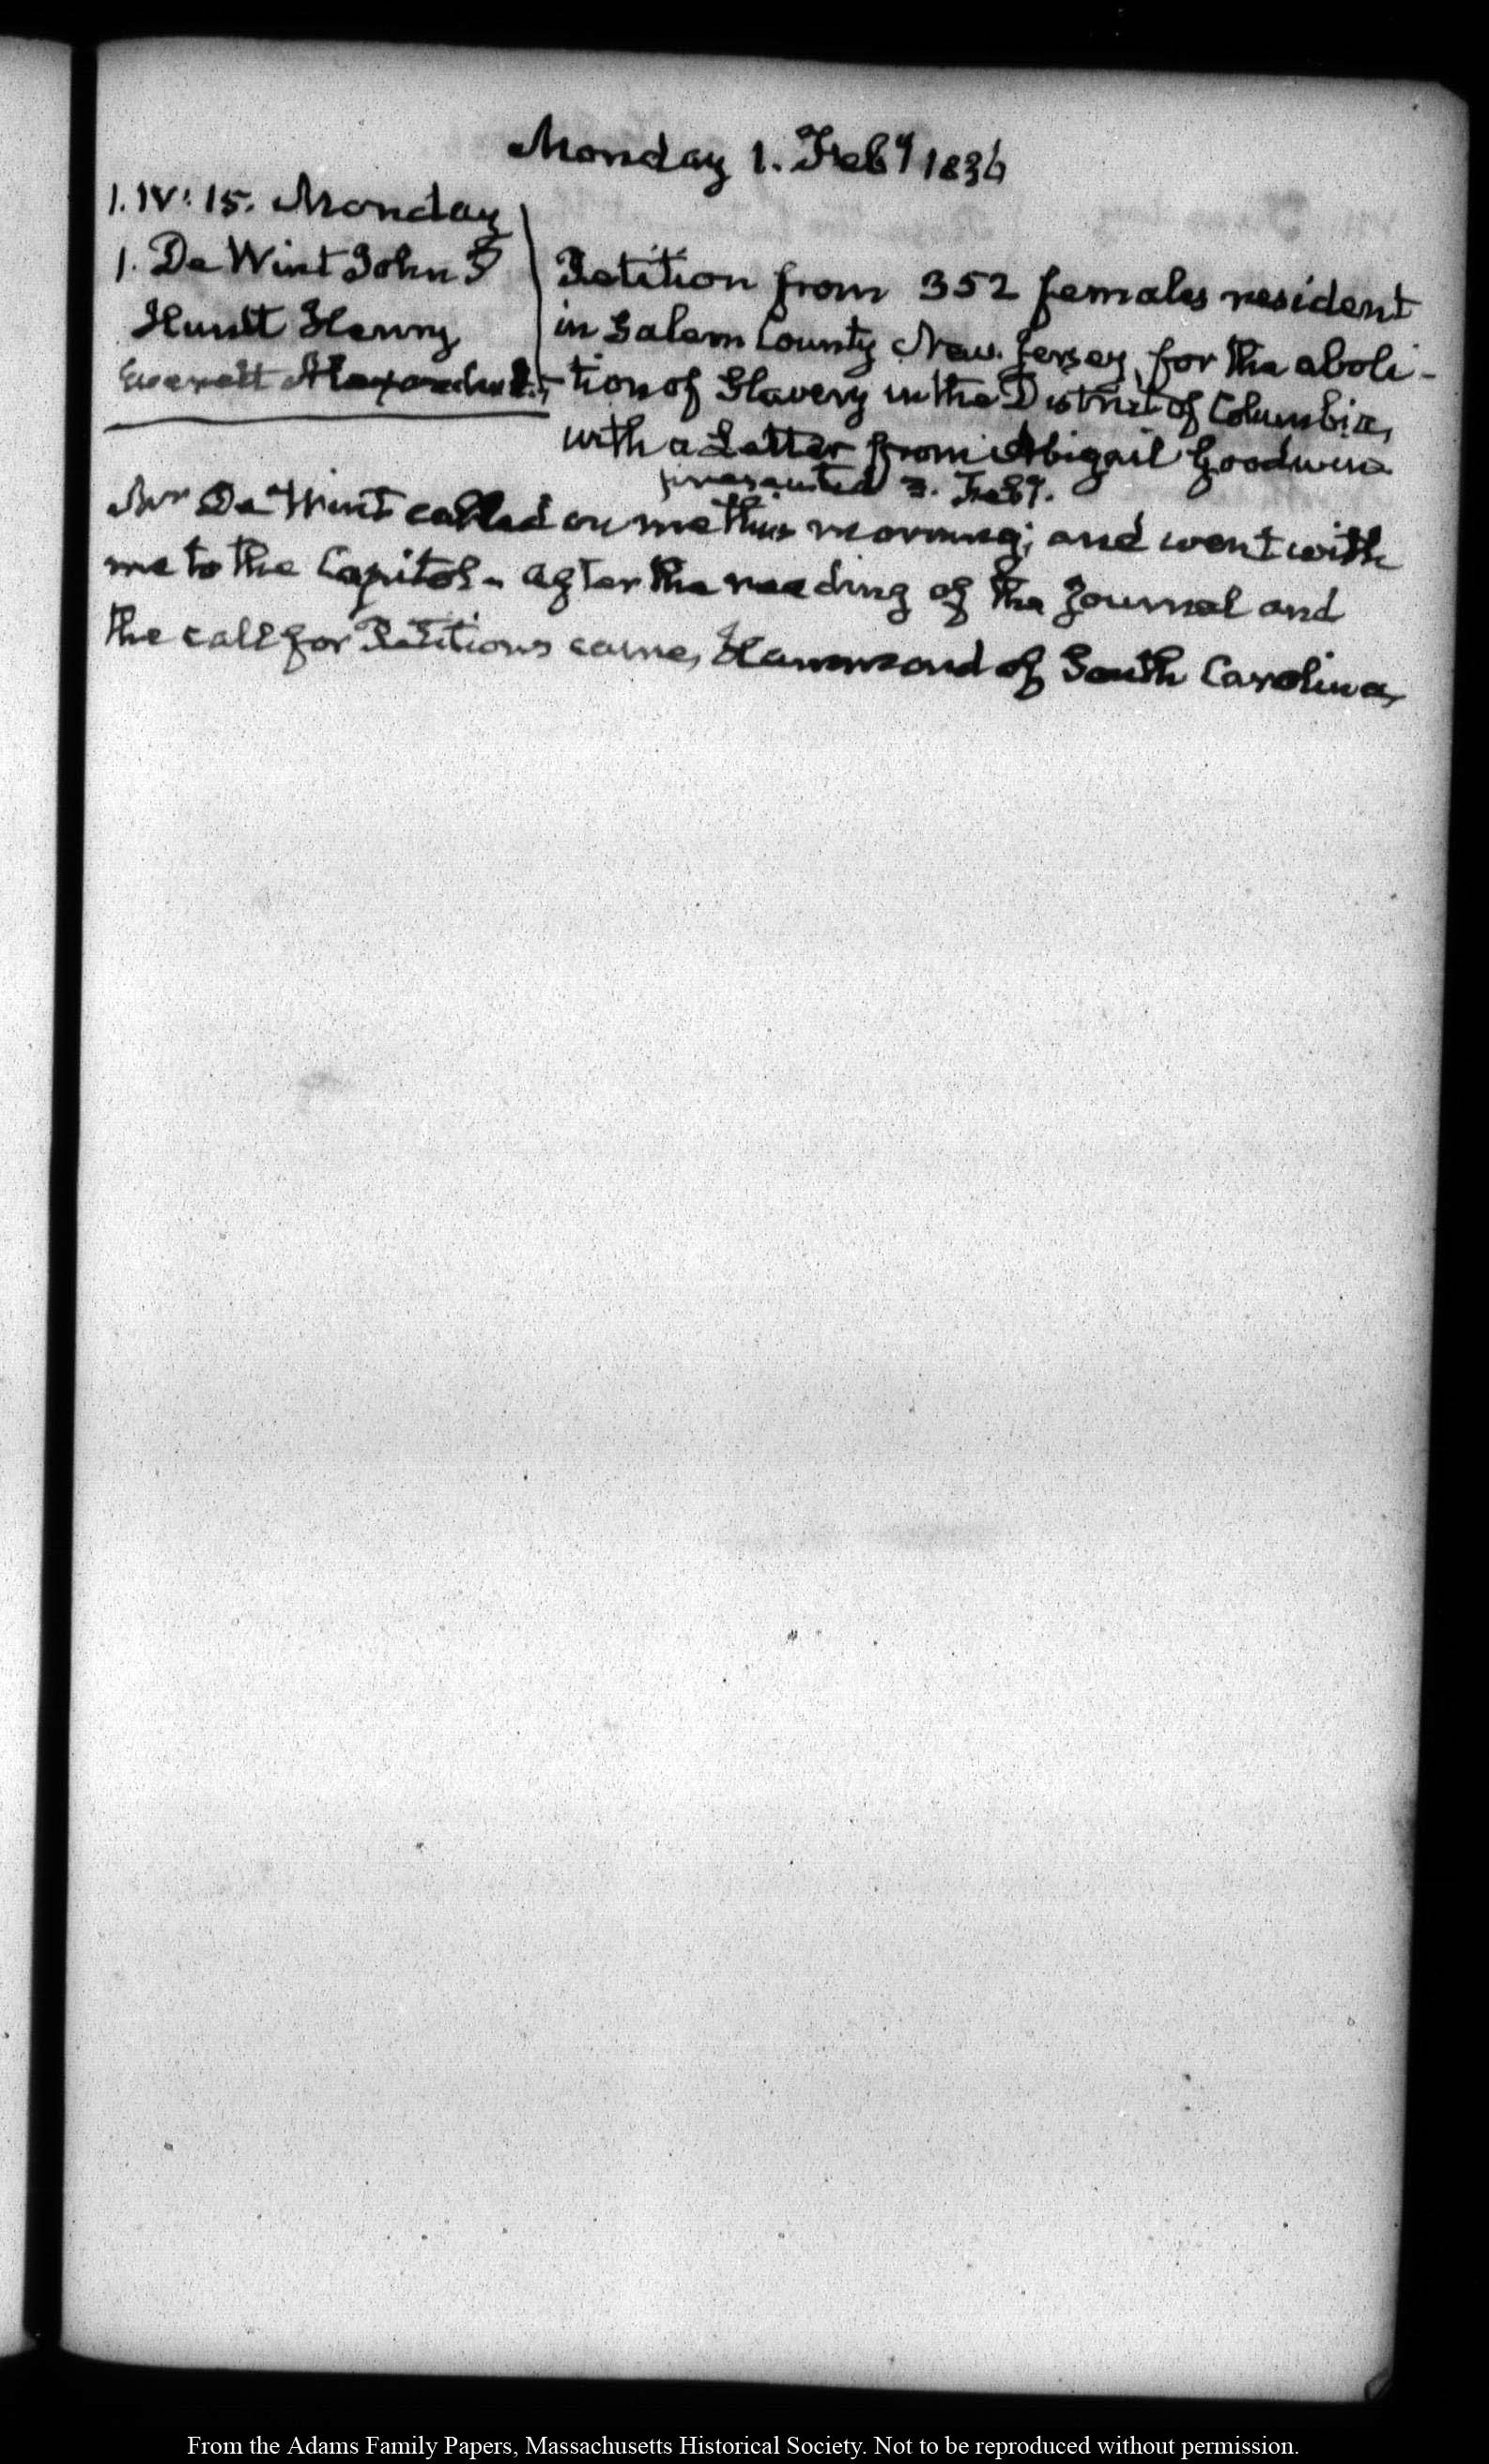 Monday 1. Feby 1836
1. IV: 15. Monday
1. De Wint John P
Hunt Henry
Everett Alexander H.
Petition from 352 females resident
in Salem County New Jersey, for the aboli-
tion of Slavery in the District of Columbia,
with a Letter from Abigail Goodwin
presented 3. Feby.
Mr De Wint called on me this morning; and went with
me to the Capitol. After the reading of the Journal and
the call for Petitions came, Hammond of South Carolina,
From the Adams Family Papers, Massachusetts Historical Society. Not to be reproduced without permission.